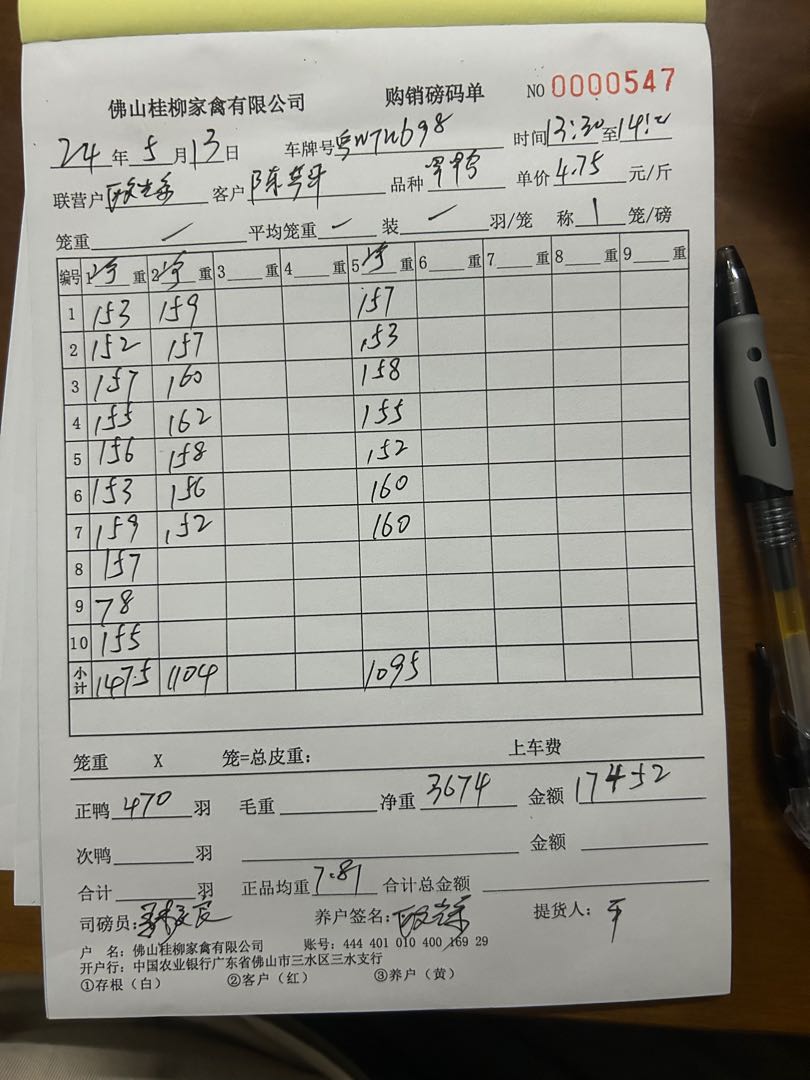 佛山桂柳家禽有限公司 购销磅码单 NO 0000547
24年5月13日 车牌号 时间13:30至
联营户 客户 品种 单价4.75元/斤
笼重 / 平均笼重 / 装 / 羽/笼 称 1 笼/磅
编号 1 重 2 重 3 重 4 重 5 重 6 重 7 重 8 重 9 重
1 153 159 157
2 152 157 153
3 157 160 158
4 155 162 155
5 156 158 152
6 153 156 160
7 159 152 160
8 157
9 78
10 155
小计 1475 1104 1095
笼重 X 笼=总皮重: 上车费
正鸭 470 羽 毛重 净重 3674 金额 17452
次鸭 羽 金额
合计 羽 正品均重 7.81 合计总金额
司磅员: 养户签名: 提货人: 平
户 名: 佛山桂柳家禽有限公司 账号: 444 401 010 400 169 29
开户行: 中国农业银行广东省佛山市三水区三水支行
①存根(白) ②客户(红) ③养户(黄)